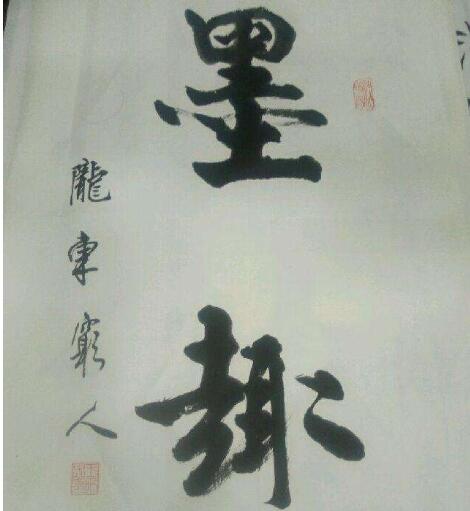 墨趣
隴東窮人